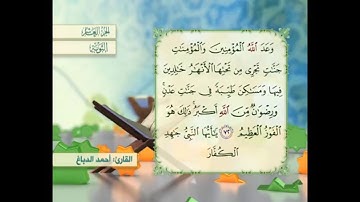 الجزء العاشر
التوبة
وَعَدَ ٱللَّهُ ٱلْمُؤْمِنِينَ وَٱلْمُؤْمِنَٰتِ
جَنَّٰتٍ تَجْرِى مِن تَحْتِهَا ٱلْأَنْهَٰرُ خَٰلِدِينَ
فِيهَا وَمَسَٰكِنَ طَيِّبَةً فِى جَنَّٰتِ عَدْنٍ
وَرِضْوَٰنٌ مِّنَ ٱللَّهِ أَكْبَرُ ذَٰلِكَ هُوَ
ٱلْفَوْزُ ٱلْعَظِيمُ ٧٢ يَٰٓأَيُّهَا ٱلنَّبِىُّ جَٰهِدِ
ٱلْكُفَّارَ
القارئ: أحمد الدباغ